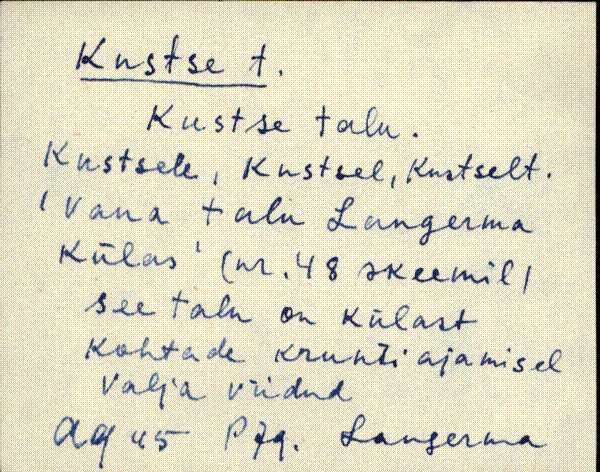 Kustse t.
Kustse talu.
Kustsele, Kustsel, Kustselt.
'Vana talu Langerma
külas' (nr. 48 skeemil)
see talu on külast
kohtade krunti ajamisel
välja viidud
Langerma